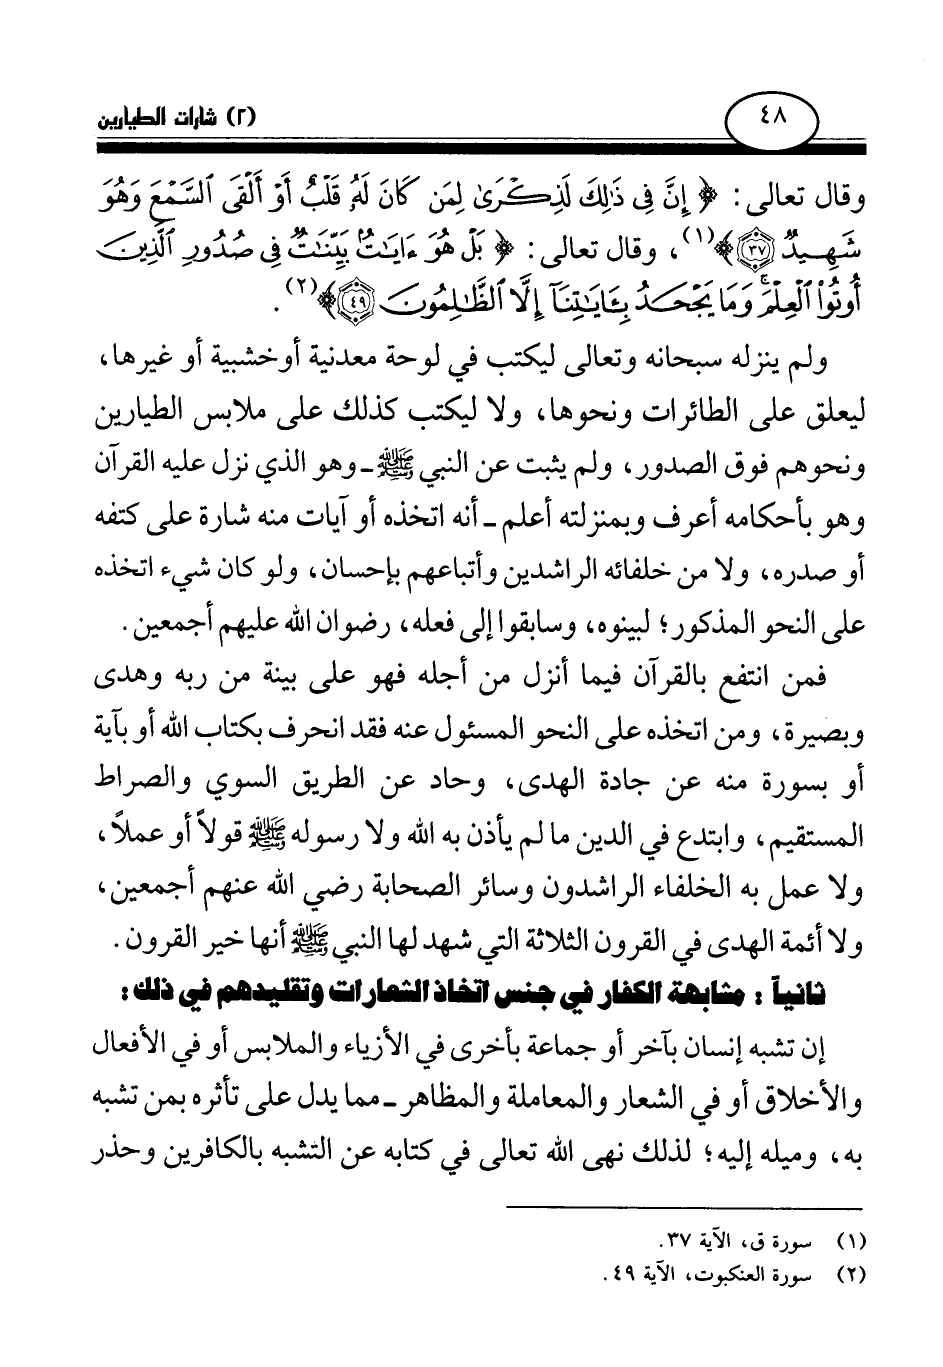 ٤٨
(٢) شارات الطيارين
وقال تعالى: ﴿ إِنَّ فِي ذَٰلِكَ لَذِكْرَىٰ لِمَن كَانَ لَهُۥ قَلْبٌ أَوْ أَلْقَى ٱلسَّمْعَ وَهُوَ
شَهِيدٌ ٣٧ ﴾(١)، وقال تعالى: ﴿ بَلْ هُوَ ءَايَٰتٌۢ بَيِّنَٰتٌ فِي صُدُورِ ٱلَّذِينَ
أُوتُوا۟ ٱلْعِلْمَ ۚ وَمَا يَجْحَدُ بِـَٔايَٰتِنَآ إِلَّا ٱلظَّٰلِمُونَ ٤٩ ﴾(٢).
ولم ينزله سبحانه وتعالى ليكتب في لوحة معدنية أو خشبية أو غيرها،
ليعلق على الطائرات ونحوها، ولا ليكتب كذلك على ملابس الطيارين
ونحوهم فوق الصدور، ولم يثبت عن النبي ﷺ ـ وهو الذي نزل عليه القرآن
وهو بأحكامه أعرف وبمنزلته أعلم ـ أنه اتخذه أو آيات منه شارة على كتفه
أو صدره، ولا من خلفائه الراشدين وأتباعهم بإحسان، ولو كان شيء اتخذه
على النحو المذكور؛ لبينوه، وسابقوا إلى فعله، رضوان الله عليهم أجمعين.
فمن انتفع بالقرآن فيما أنزل من أجله فهو على بينة من ربه وهدى
وبصيرة، ومن اتخذه على النحو المسئول عنه فقد انحرف بكتاب الله أو بآية
أو بسورة منه عن جادة الهدى، وحاد عن الطريق السوي والصراط
المستقيم، وابتدع في الدين ما لم يأذن به الله ولا رسوله ﷺ قولاً أو عملاً،
ولا عمل به الخلفاء الراشدون وسائر الصحابة رضي الله عنهم أجمعين،
ولا أئمة الهدى في القرون الثلاثة التي شهد لها النبي ﷺ أنها خير القرون.
ثانياً : مشابهة الكفار في جنس اتخاذ الشعارات وتقليدهم في ذلك :
إن تشبه إنسان بآخر أو جماعة بأخرى في الأزياء والملابس أو في الأفعال
والأخلاق أو في الشعار والمعاملة والمظاهر ـ مما يدل على تأثره بمن تشبه
به، وميله إليه؛ لذلك نهى الله تعالى في كتابه عن التشبه بالكافرين وحذر
(١) سورة ق، الآية ٣٧.
(٢) سورة العنكبوت، الآية ٤٩.